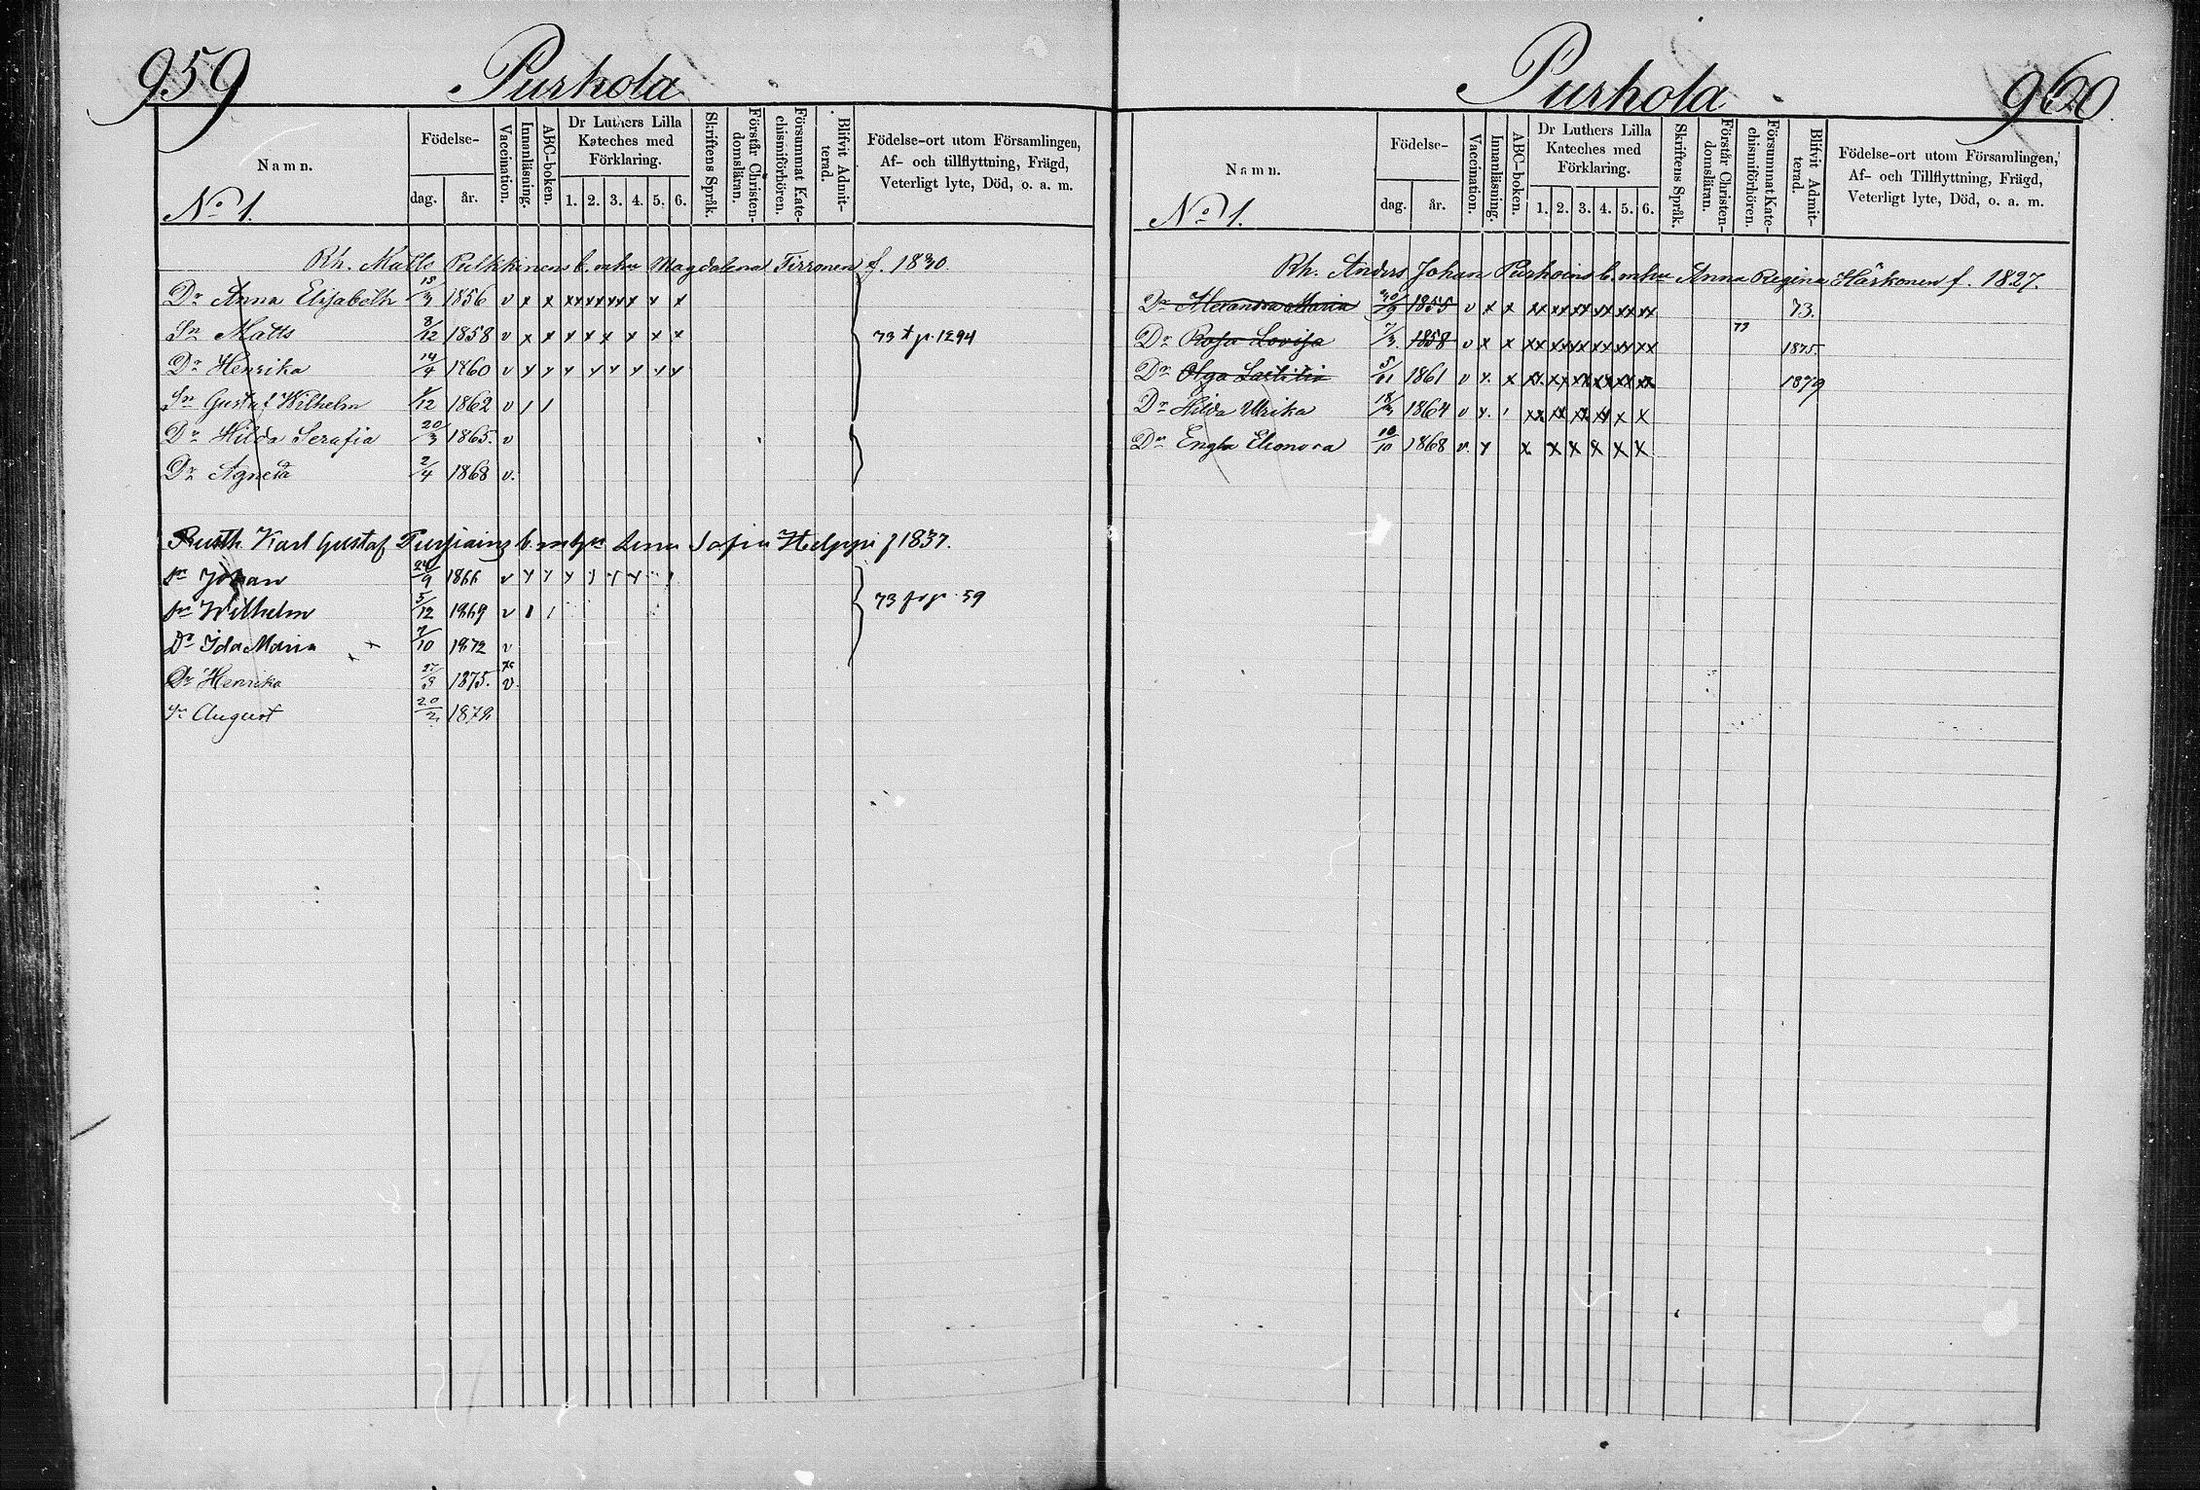 959
Purhola
Namn.
Födelse-
dag.
år.
Vaccination.
Innanläsning.
ABC-boken.
Dr Luthers Lilla
Kateches med
Förklaring.
1. 2. 3. 4. 5. 6.
Skriftens Språk.
Förstår Christen-
domsläran.
Försummat Kate-
chismiförhören.
Blifvit Admit-
terad.
Födelse-ort utom Församlingen,
Af- och tillflyttning, Frägd,
Veterligt lyte, Död, o. a. m.
No 1.
Rh. Matts Pulkkinens b. m hu Magdalena Tirronen f. 1830.
Dr Anna Elisabeth 15/3 1856 v x x xx xx xx x x x
Sn Matts 8/12 1858 v x x x x x x x x 73 p. 1294
Dr Henrika 14/4 1860 v x x x x x x x x
Sn Gustaf Wilhelm 1/12 1862 v / /
Dr Hilda Serafia 20/3 1865. v
Dr Agneta 2/4 1868 v.
Karl Gustaf b. Lena Sofia Helppi f 1837.
sn Johan 24/9 1866 v
sn Wilhelm 5/12 1869 v 1 1 73 59
Dr Ida Maria 7/10 1872 v
Dr Henrika 27/3 1875. v.
sn August 20/2 1879
Purhola
960.
Namn.
Födelse-
dag.
år.
Vaccination.
Innanläsning.
ABC-boken.
Dr Luthers Lilla
Kateches med
Förklaring.
1. 2. 3. 4. 5. 6.
Skriftens Språk.
Förstår Christen-
domsläran.
Försummat Kate-
chismiförhören.
Blifvit Admit-
terad.
Födelse-ort utom Församlingen,
Af- och Tillflyttning, Frägd,
Veterligt lyte, Död, o. a. m.
No 1.
Rh. Anders Johan Purhoins b. m hu Anna Regina Härkonen f. 1827.
Dr Alexandra Maria 1855 v x x xx xx xx xx xx xx 73.
Dr Rosa Lovisa 7/3 1858 v x x xx xx xx xx xx xx 73 1875.
Dr Olga Laetitia 5/11 1861 v x. x xx xx xx xx xx xx 1879
Dr Hilda Ulrika 18/3 1864 v x. xx xx xx xx x x
Dr Engla Eleonora 10/10 1868 v. x x x x x x x